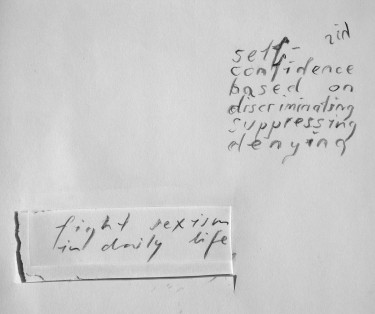 self-
confidence
based on
discriminating
suppressing
denying
fight sexism
in daily life